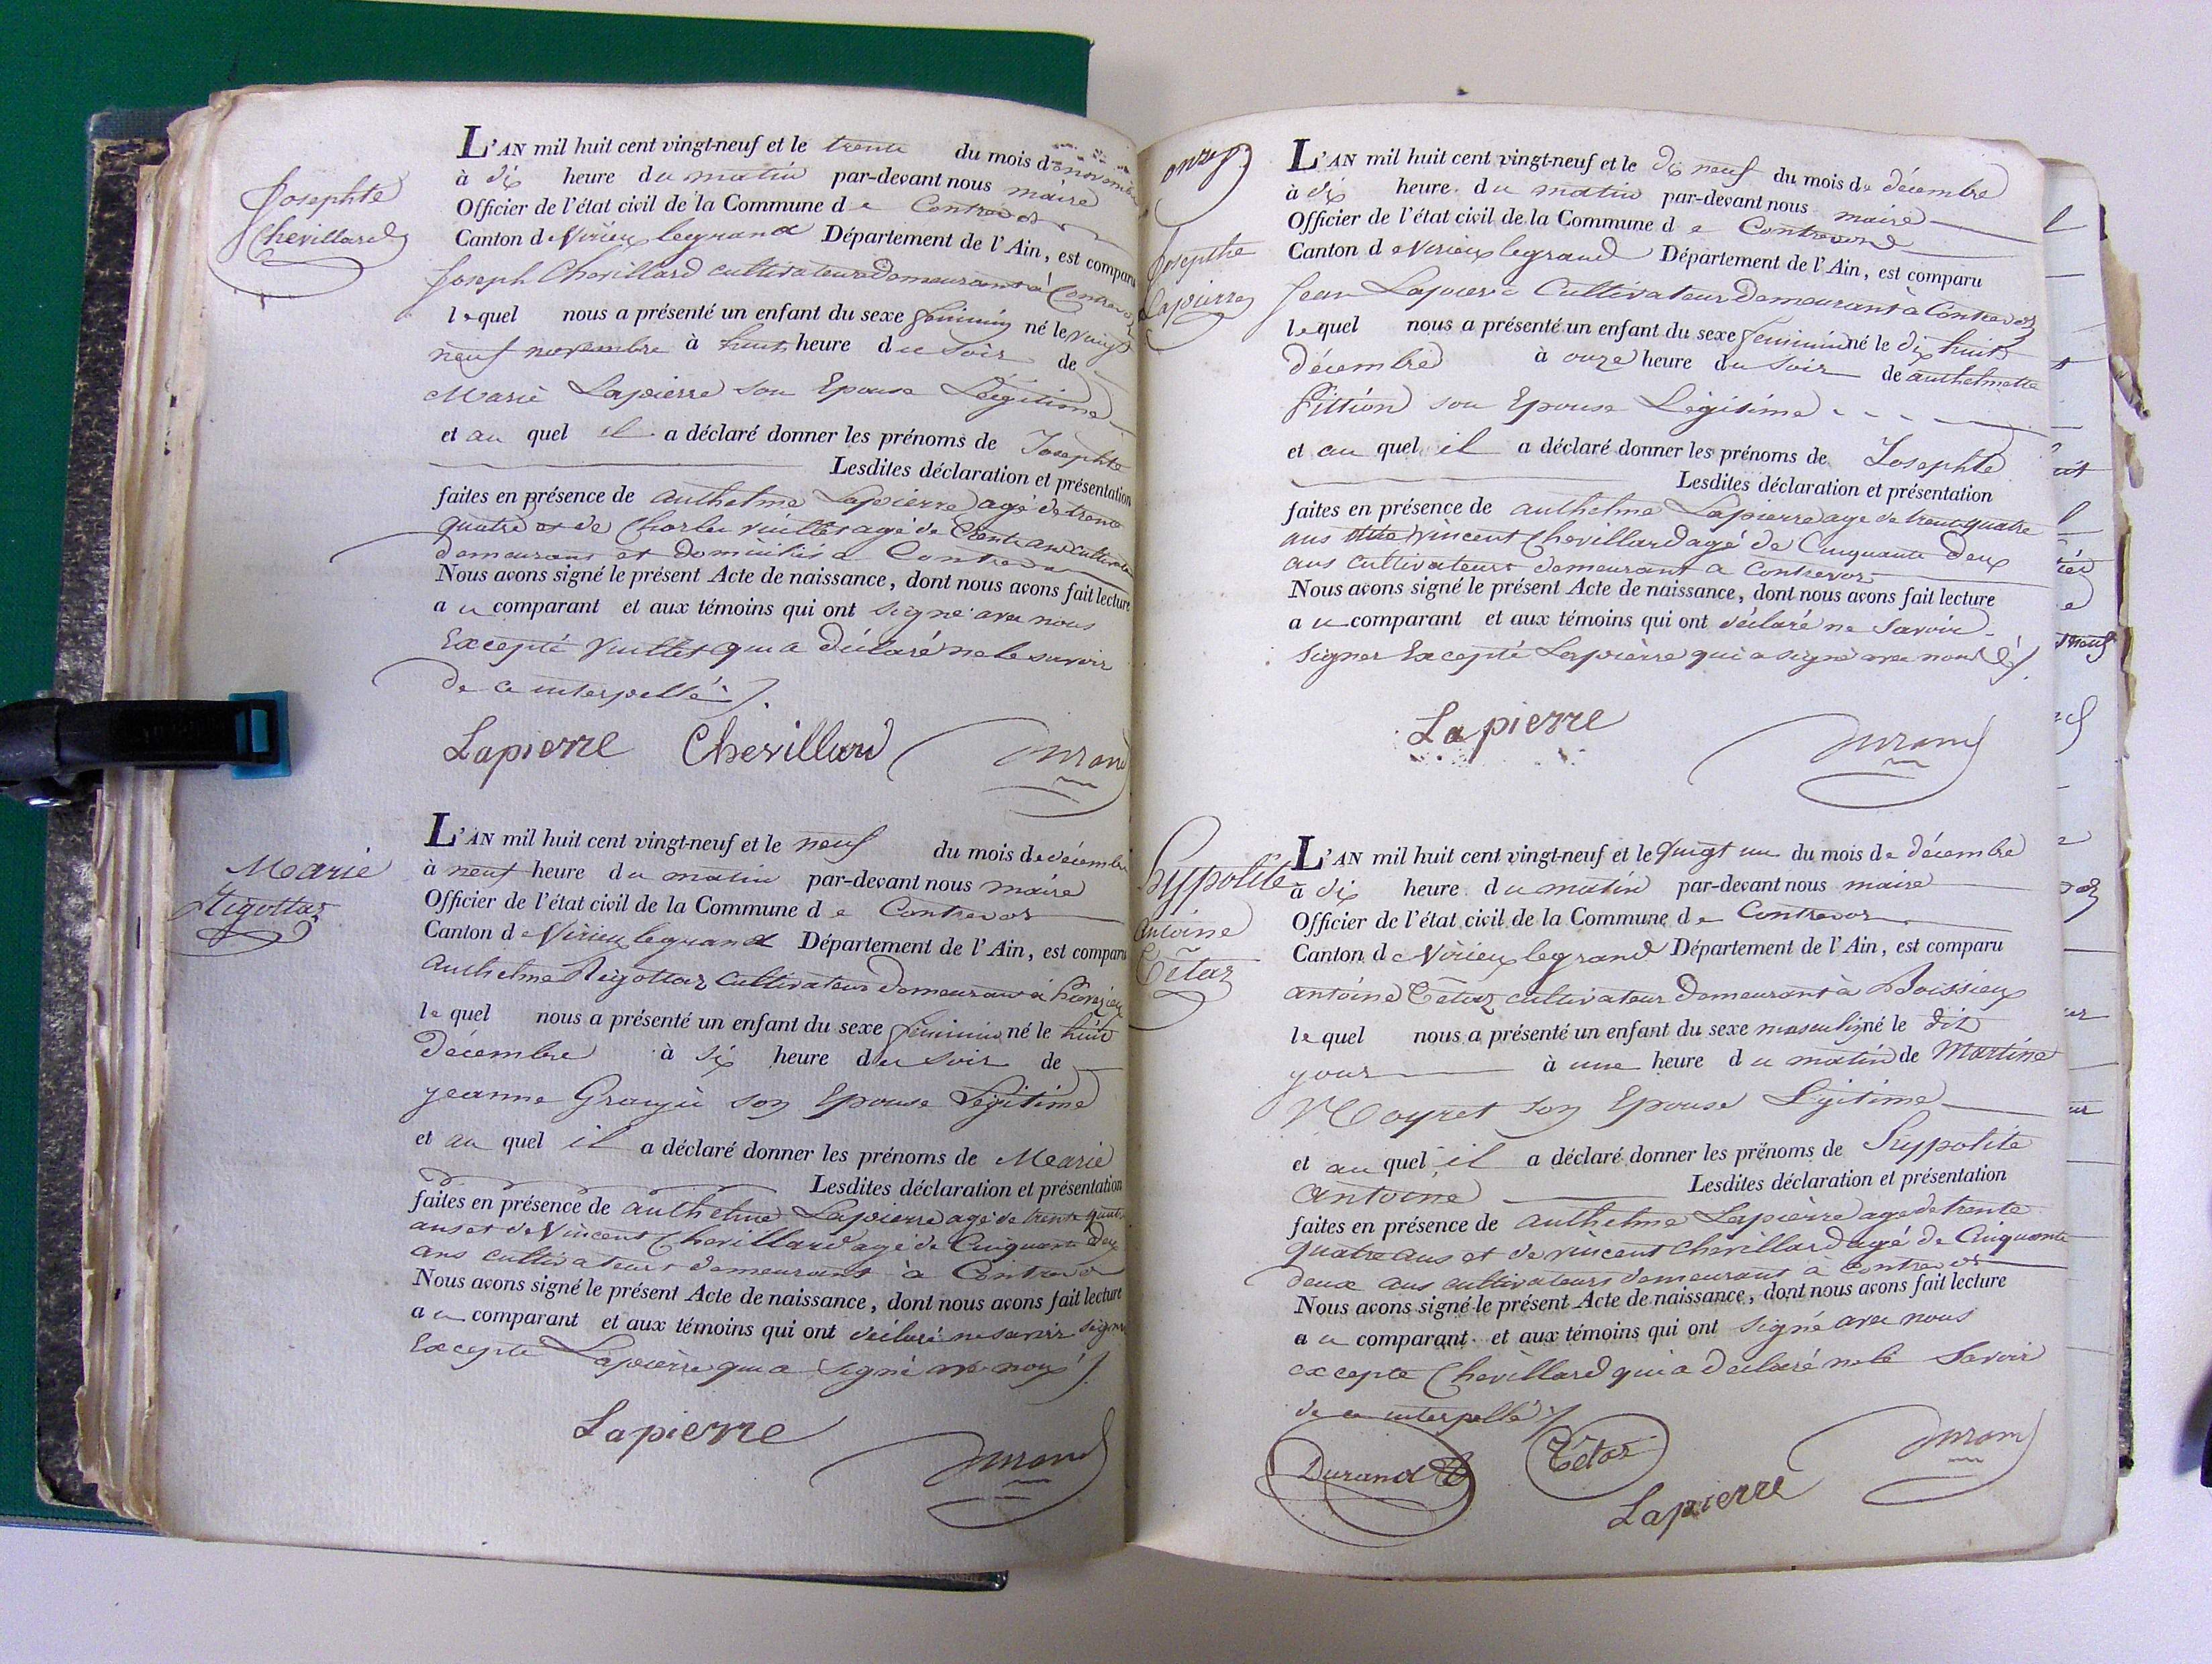 Josephte
Chevillard
L'AN mil huit cent vingt-neuf et le trente du mois de novembre
à dix heure du matin par-devant nous maire
Officier de l'état civil de la Commune de Contrevoz
Canton de Virieu legrand Département de l'Ain, est comparu
Joseph Chevillard cultivateur Demeurant à Contrevoz
lequel nous a présenté un enfant du sexe féminin né le vingt
neuf novembre à huit heure du soir de
Marie Lapierre son Epouse Légitime
et au quel il a déclaré donner les prénoms de Josephte
Lesdites déclaration et présentation
faites en présence de anthelme Lapierre agé de trente
quatre et de Charles vuillet agé de trente ans cultivateurs
demeurans et domiciliés a Contrevoz
Nous avons signé le présent Acte de naissance, dont nous avons fait lecture
au comparant et aux témoins qui ont signé avec nous
Excepté Vuillet qui a Déclaré ne le savoir
de ce interpellé
Lapierre Chevillard Durand
Marie
Rigottaz
L'AN mil huit cent vingt-neuf et le neuf du mois de décembre
à neuf heure du matin par-devant nous maire
Officier de l'état civil de la Commune de Contrevoz
Canton de Virieu legrand Département de l'Ain, est comparu
Anthelme Rigottaz cultivateur Demeurant à
lequel nous a présenté un enfant du sexe féminin né le huit
Décembre à six heure du soir de
Jeanne son Epouse Légitime
et au quel il a déclaré donner les prénoms de Marie
Lesdites déclaration et présentation
faites en présence de anthelme Lapierre agé de trente quatre
ans et de Vincent Chevillard agé de Cinquante Deux
ans cultivateurs demeurant à Contrevoz
Nous avons signé le présent Acte de naissance, dont nous avons fait lecture
au comparant et aux témoins qui ont déclaré ne savoir signer
Excepté Lapierre qui a signé avec nous
Lapierre
Durand
onze
Josepthe
Lapierre
L'AN mil huit cent vingt-neuf et le dix neuf du mois de décembre
à dix heure du matin par-devant nous maire
Officier de l'état civil de la Commune de Contrevoz
Canton de Virieu legrand Département de l'Ain, est comparu
Jean Lapierre Cultivateur Demeurant à Contrevoz
lequel nous a présenté un enfant du sexe féminin né le dix huit
décembre à onze heure du soir de anthelmette
Fittion son Epouse Légitime
et au quel il a déclaré donner les prénoms de Josephte
Lesdites déclaration et présentation
faites en présence de anthelme Lapierre agé de trente quatre
ans vincent Chevillard agé de Cinquante Deux
ans cultivateurs demeurant a Contrevoz
Nous avons signé le présent Acte de naissance, dont nous avons fait lecture
au comparant et aux témoins qui ont déclaré ne savoir
signer Excepté Lapierre qui a signé avec nous
Lapierre
Durand
hyppolite
antoine
Tétaz
L'AN mil huit cent vingt-neuf et le vingt un du mois de décembre
à dix heure du matin par-devant nous maire
Officier de l'état civil de la Commune de Contrevoz
Canton de Virieu legrand Département de l'Ain, est comparu
antoine Tétaz cultivateur Demeurant à Boissieu
lequel nous a présenté un enfant du sexe masculin né le dit
jour à une heure du matin de Martine
Moyret son Epouse Légitime
et au quel il a déclaré donner les prénoms de hyppolite
antoine Lesdites déclaration et présentation
faites en présence de anthelme Lapierre agé de trente
quatre ans et de vincent Chevillard agé de Cinquante
deux ans cultivateurs demeurant a Contrevoz
Nous avons signé le présent Acte de naissance, dont nous avons fait lecture
au comparant et aux témoins qui ont signé avec nous
excepté Chevillard qui a déclaré ne le Savoir
de ce interpellé
Durand Tétaz Durand
Lapierre